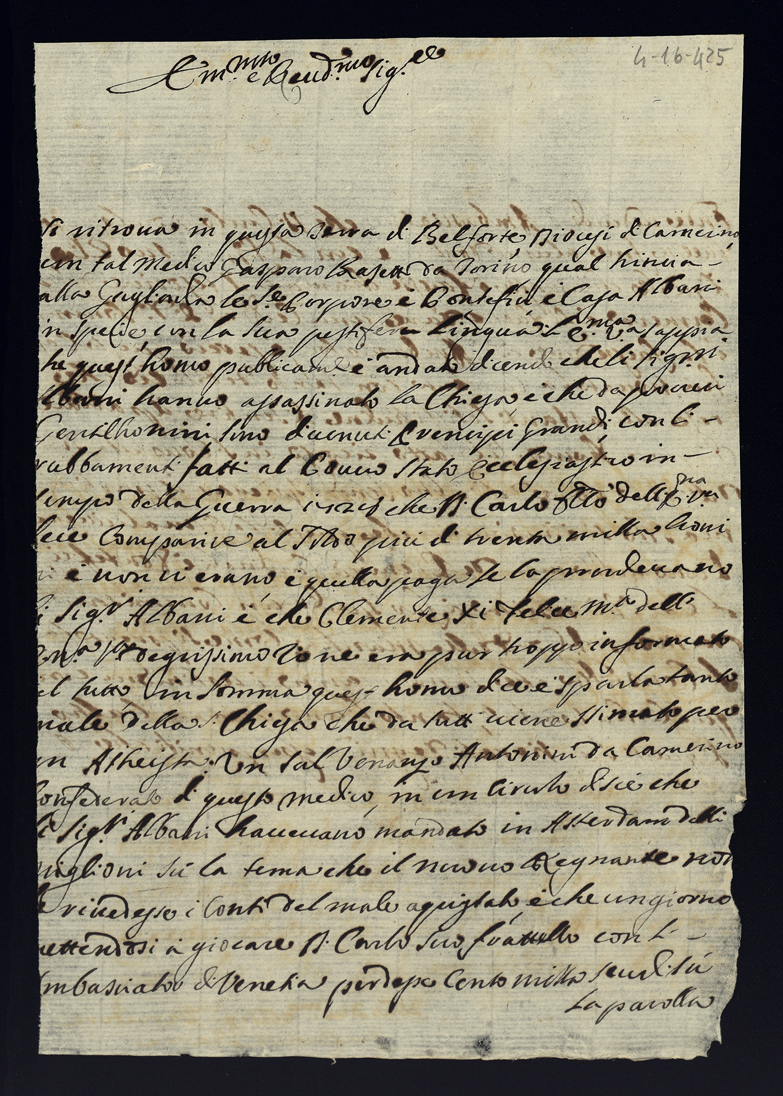 4-16-425
Em.mo e Reud.mo Sig.re
Si ritroua in questa Terra di Belforte Diocesi di Camerino
un tal Medico Gasparo da Torino qual
alla e Pontefici e Casa Albani
in specie, con la sua pestifera Lingua. L'Em.za Va sappia
che quest'homo è andato dicendo che li Sig.ri
Albani hanno assassinato la Chiesa e che da poueri
Gentilhomini sino diuenuti Prencipi Grandi con li
rubbamenti fatti al Pouero Stato Ecclesiastico in
tempo della Guerra che D. Carlo dell'
fece Comparire al più di trenta milla homi
ni e non ui erano e quella paga se la prendeuano
li Sig.ri Albani e che Clemente XI Felice Me. dell'
Zio ne era pur troppo informato
del tutto in somma quest' homo dice e sparla tanto
male della S. Chiesa che da tutti uiene stimato per
un Atheista. Un tal Venanzo Antonini da Camerino
Confederato di questo medico, in un Circulo disse che
li Sig.ri Albani haueuano mandato in Asterdam delli
miglioni sù la tema che il nuouo Regnante non
li riuedesse i Conti del male aquistato, e che un giorno
mettendosi à giocare D. Carlo suo frattello con l'
Imbasciator di Venetia perdesse Cento milla scudi sù
la parolla